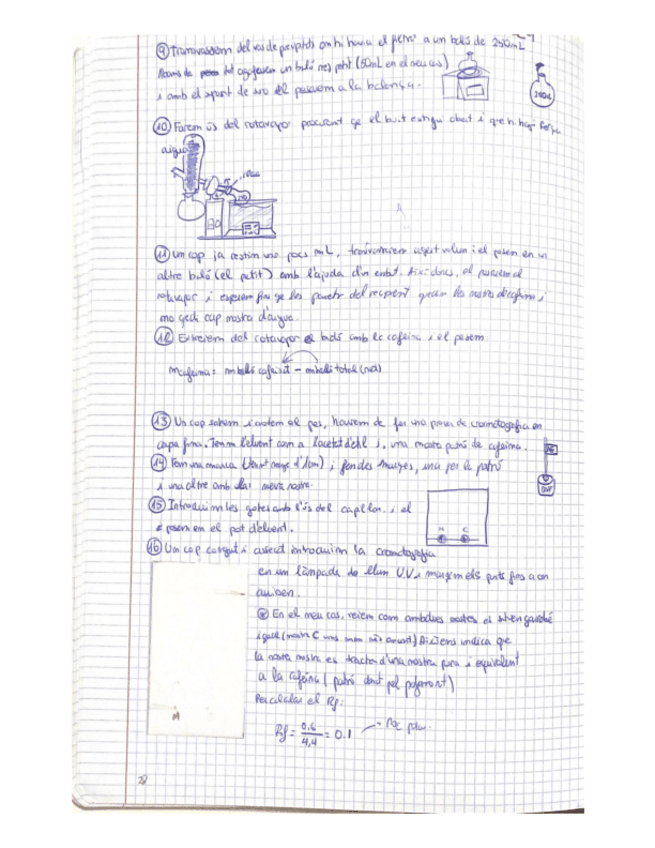 ⑨ Transvasem del vas de precipitats on hi havia el filtrat a un baló de 250mL
i amb el suport de suro el pesem a la balança.
250mL
⑩ Farem ús del rotavapor procurant que el buit estigui obert i que hi hagi força
aigua
⑪ Un cop ja restin uns pocs mL, transvasem aquest volum i el posem en un
altre baló (el petit) amb l'ajuda d'un embut. Així doncs, el posarem al
rotavapor i esperem fins que les parets del recipient quedin les nostra de cafeïna i
no quedi cap mostra d'aigua.
⑫ Extreiem del rotavapor el baló amb la cafeïna i el pesem
m cafeïna = m baló cafeïna - m baló total (buit)
⑬ Un cop sabem i anotem el pes, haurem de fer una placa de cromatografia en
capa fina. Tenim l'eluent com a l'acetat d'etil i, una mostra patró de cafeïna.
⑭ Fem una marca (d'1cm) i fem dues marques, una per el patró
i una altre amb la nostra mostra.
⑮ Introduïm les gotes amb l'ús del capil·lar i el
posem en el pot d'eluent.
M C
⑯ Un cop corregut i assecat introduïm la cromatografia
en una làmpada de llum U.V. i marquem els punts fins a on
arriben.
En el meu cas, veiem com ambdues gotes
igual Això ens indica que
la nostra mostra es tracta d'una mostra pura i equivalent
a la cafeïna (patró donat pel professorat)
Per calcular el Rf:
Rf = 0,6 / 4,4 = 0.1 → Poc polar.
M
28